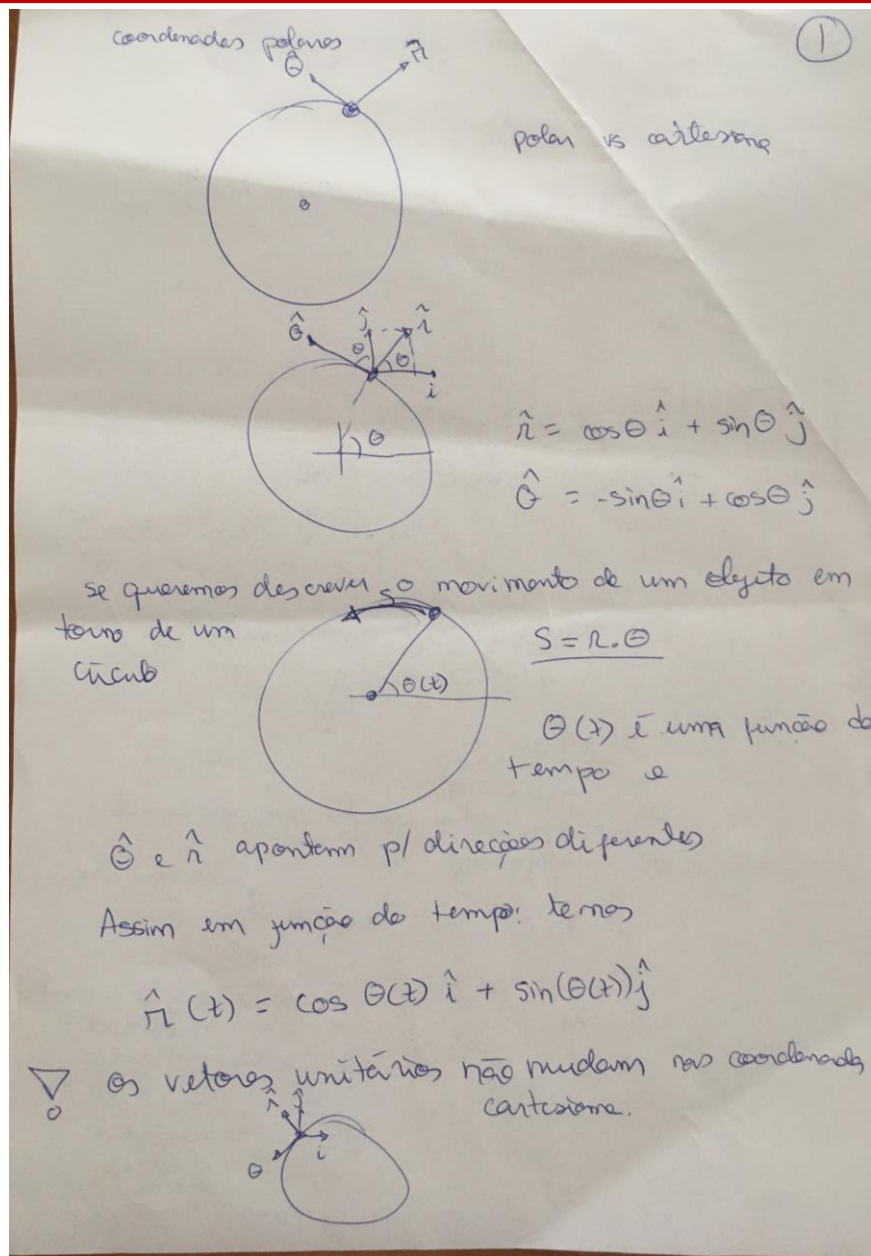 coordenadas polares
1
θ̂ r̂
polar vs cartesiana
θ̂ ĵ r̂
θ θ
i
θ
r̂ = cosθ î + sinθ ĵ
θ̂ = -sinθ î + cosθ ĵ
se queremos descrever o movimento de um objeto em
S
torno de um
círculo
S = r.θ
θ(t)
θ(t) é uma função do
tempo e
θ̂ e r̂ apontam p/ direções diferentes
Assim em função do tempo: temos
r̂(t) = cos θ(t) î + sin(θ(t)) ĵ
! os vetores unitários não mudam nas coordenada
cartesiana.
r̂ ĵ
θ i